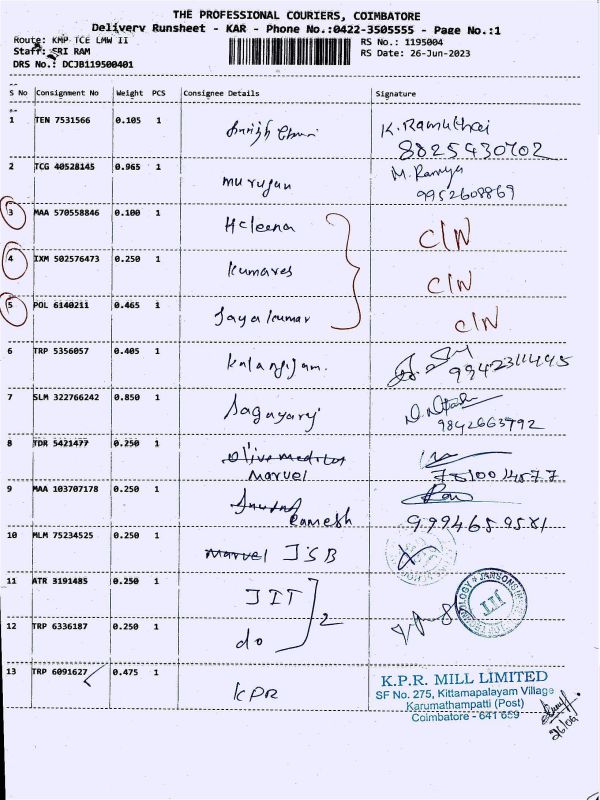 THE PROFESSIONAL COURIERS, COIMBATORE
Delivery Runsheet - KAR - Phone No.:0422-3505555 - Page No.:1
Route: KMP TCE LMW II
RS No.: 1195004
Staff: SRI RAM
RS Date: 26-Jun-2023
DRS No.: DCJB119500401
S No Consignment No Weight PCS Consignee Details Signature
1 TEN 7531566 0.105 1 K. Ramuthai
8825430702
2 TCG 40528145 0.965 1 murugan M. Ramya
9952608869
3 MAA 570558846 0.100 1 Heleena C/N
4 IXM 502576473 0.250 1 Kumares C/N
5 POL 6140211 0.465 1 Jayakumar C/N
6 TRP 5356057 0.405 1 Kalangijam.
7 SLM 322766242 0.850 1 Sagayaraj
9842663792
8 TDR 5421477 0.250 1
Marvel
9 MAA 103707178 0.250 1
Ramesh 9994659581
10 MLM 75234525 0.250 1 Marvel JSB
11 ATR 3191485 0.250 1 JIT
2
12 TRP 6336187 0.250 1 do
JIT
13 TRP 6091627 0.475 1 KPR
K.P.R. MILL LIMITED
SF No. 275, Kittamapalayam Village
Karumathampatti (Post)
Coimbatore - 641 659
26/06